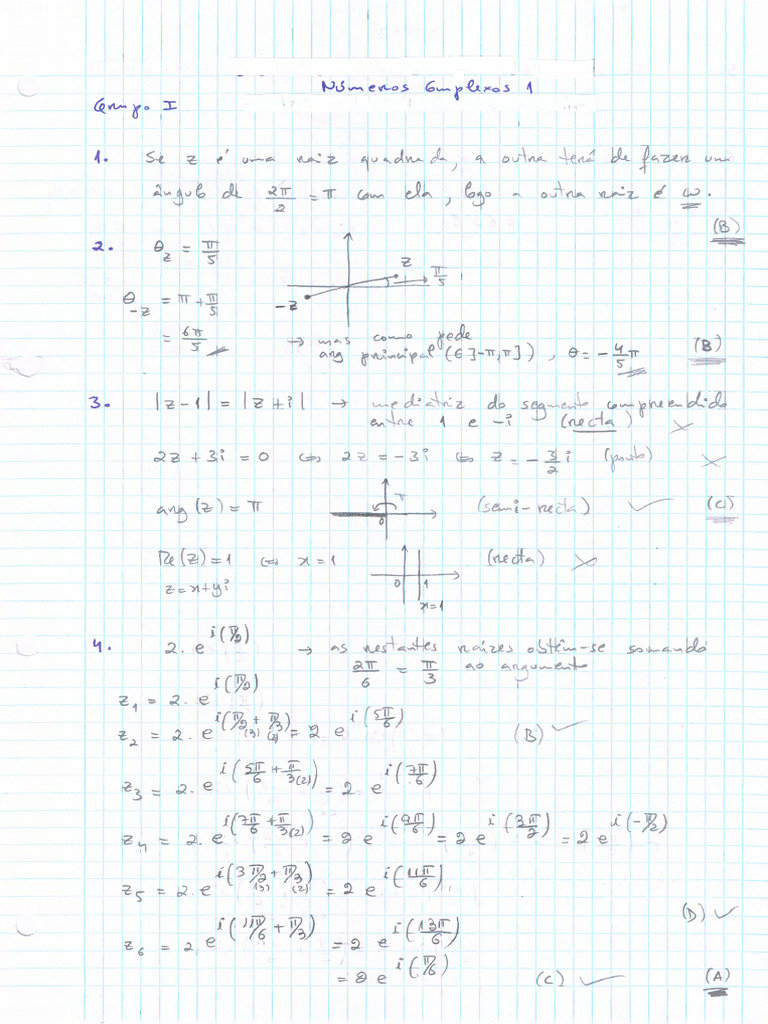 Números Complexos 1
Grupo I
1. Se z é uma raiz quadrada, a outra terá de fazer um
ângulo de 2π/2 = π com ela, logo a outra raiz é ω.
(B)
2. θ_z = π/5
z
π/5
-z
θ_-z = π + π/5
= 6π/5 → mas como pede
ang principal (∈]-π,π]) , θ = -4/5 π (B)
3. |z-1| = |z+i| → mediatriz do segmento compreendido
entre 1 e -i (recta) ×
2z + 3i = 0 ⇔ 2z = -3i ⇔ z = -3/2 i (ponto) ×
arg(z) = π π 0 (semi-recta) ✓ (C)
Re(z)=1 ⇔ x=1 0 1 (recta) ×
z=x+yi x=1
4. 2. e^i(π/2) → as restantes raízes obtêm-se somando
2π/6 = π/3 ao argumento
z₁ = 2. e^i(π/2)
z₂ = 2. e^i(π/2 (3) + π/3 (2)) = 2 e^i(5π/6) (B) ✓
z₃ = 2. e^i(5π/6 + π/3(2)) = 2 e^i(7π/6)
z₄ = 2. e^i(7π/6 + π/3(2)) = 2 e^i(9π/6) = 2 e^i(3π/2) = 2 e^i(-π/2)
z₅ = 2. e^i(3π/2 (3) + π/3 (2)) = 2 e^i(11π/6)
(D) ✓
z₆ = 2. e^i(11π/6 + π/3) = 2 e^i(13π/6)
= 2 e^i(π/6) (C) ✓ (A)